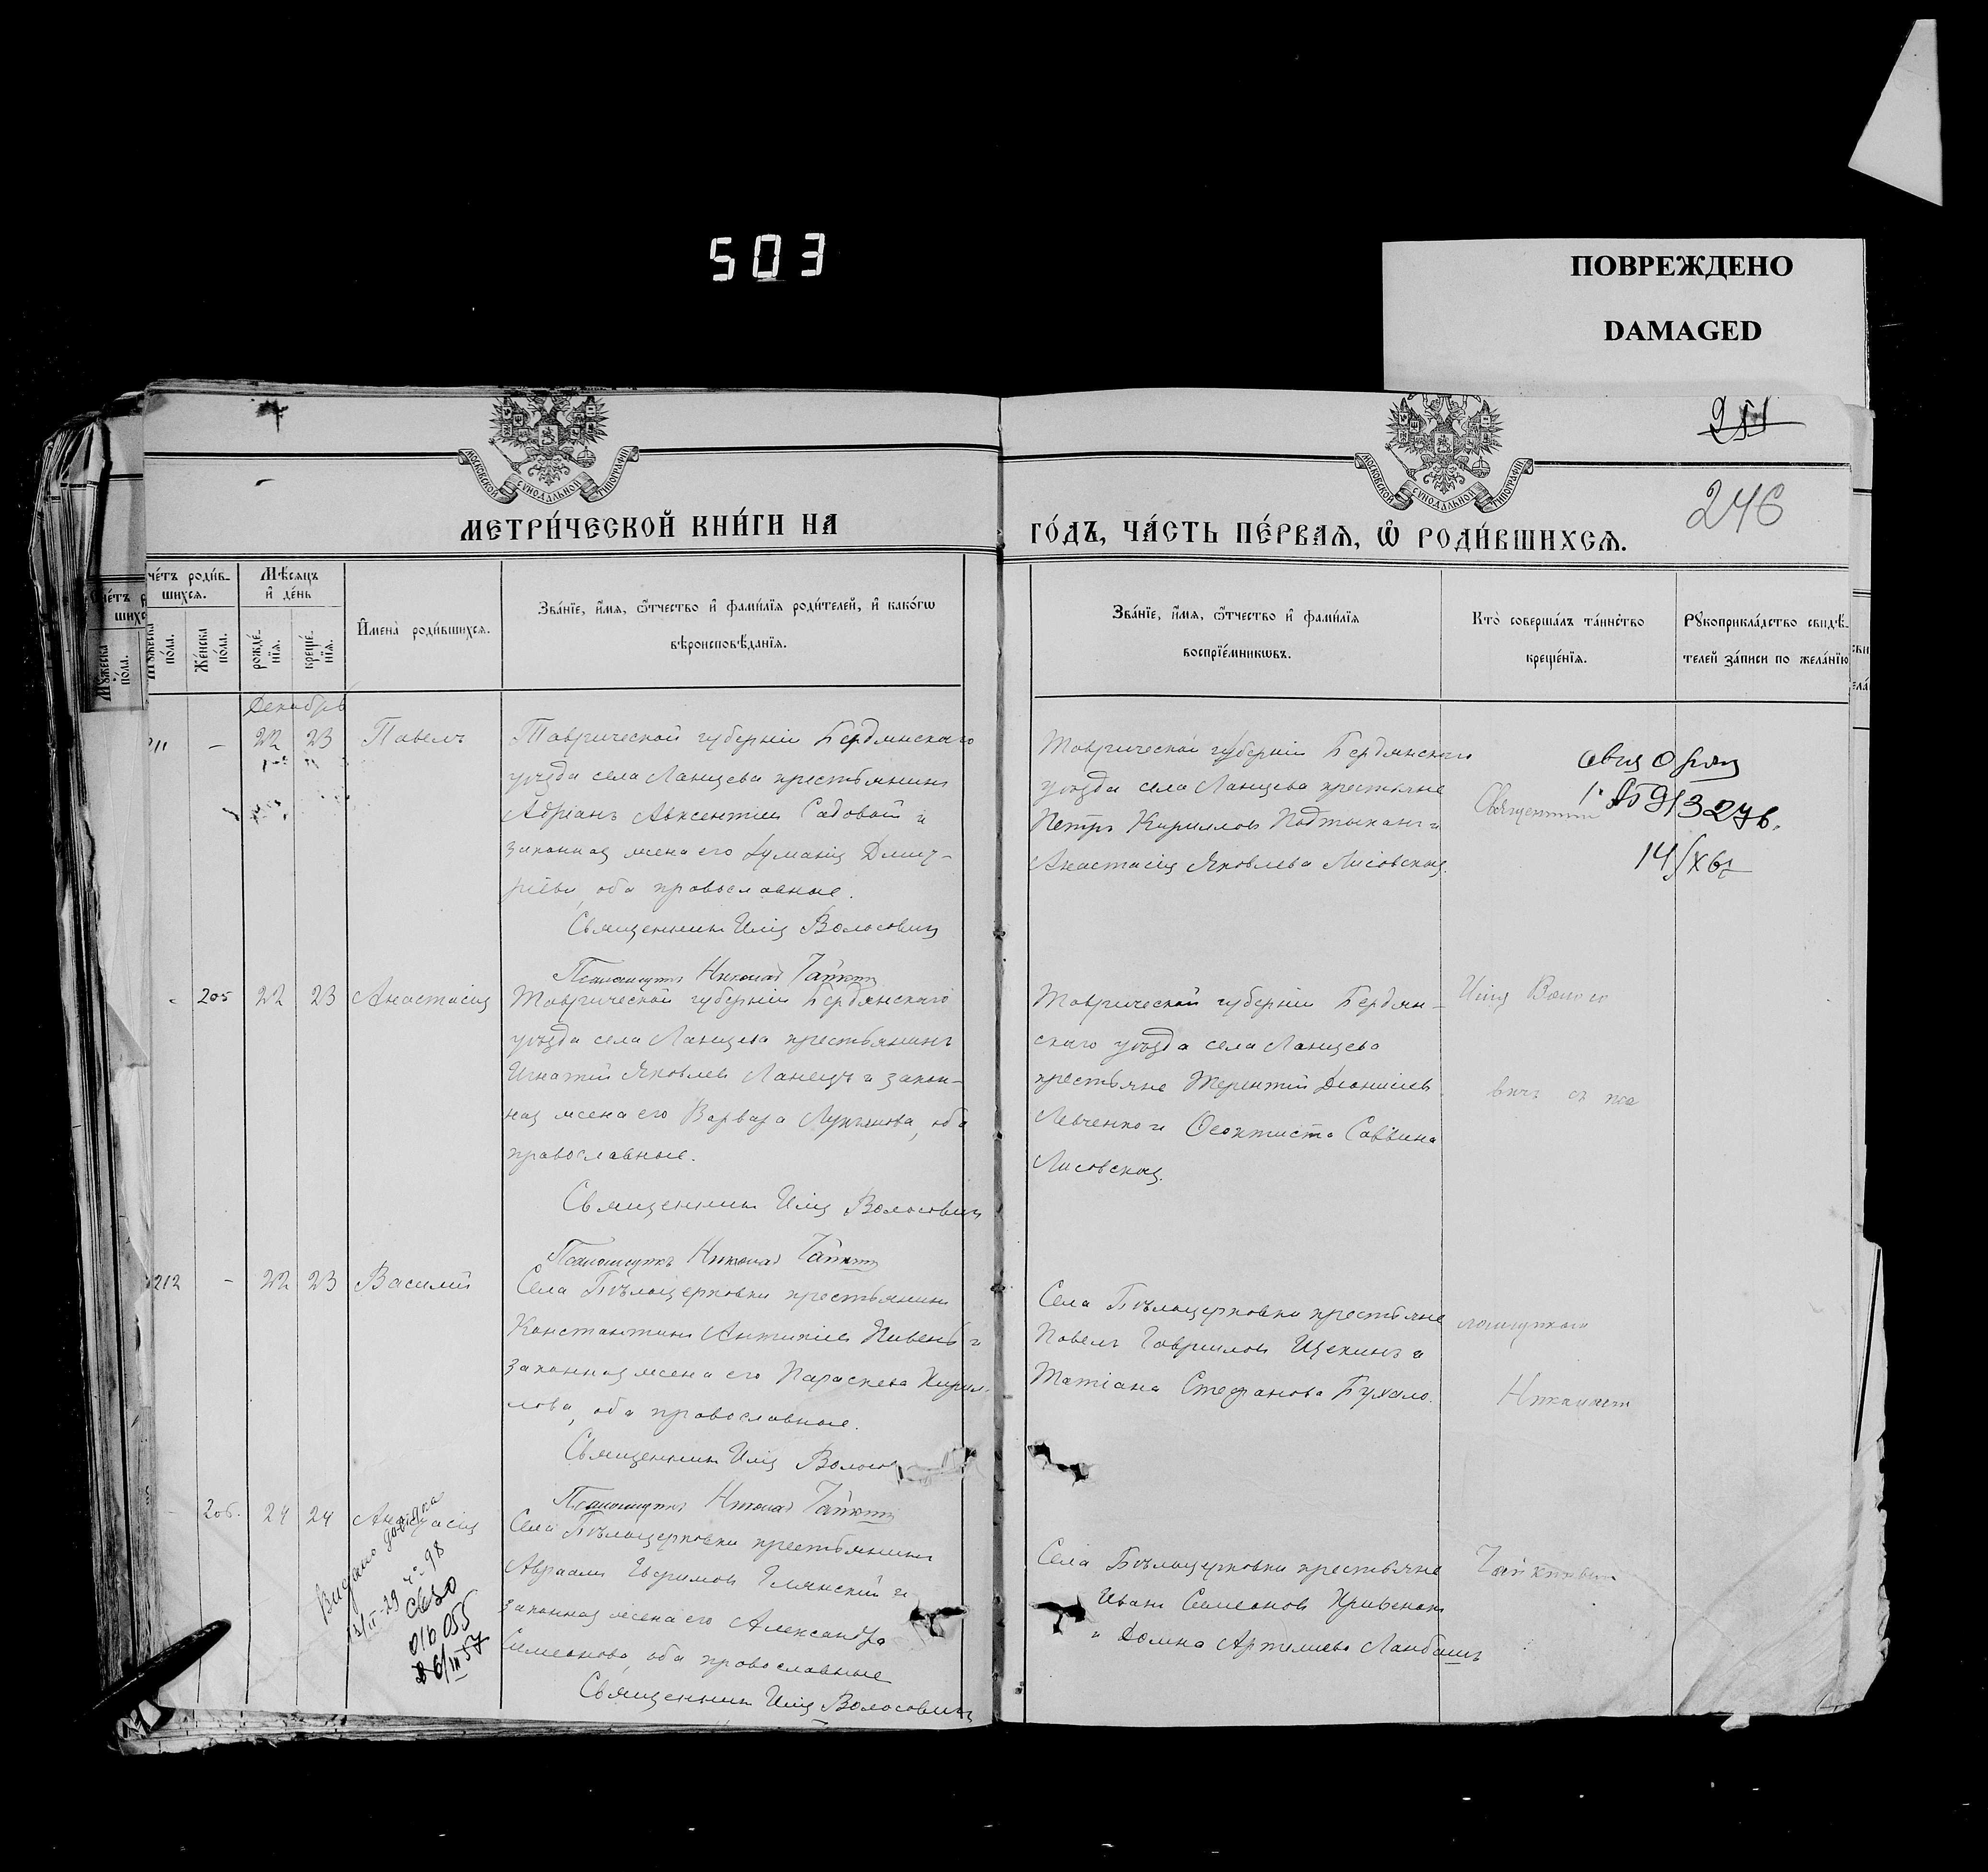 503
ПОВРЕЖДЕНО
DAMAGED
246
МОСКОВСКОЙ СѴНОДАЛЬНОЙ ТИПОГРАФІИ
МОСКОВСКОЙ СѴНОДАЛЬНОЙ ТИПОГРАФІИ
МЕТРИ́ЧЕСКОЙ КНИ́ГИ НА
ГО́ДЪ, ЧА́СТЬ ПЕ́РВАѦ, Ѽ РОДИ́ВШИХСѦ.
че́тъ роди́в-
шихсѧ.
Мѣсяцъ
и҆ де́нь
Мꙋжеска по́ла.
Же́нска по́ла.
рожде́нїѧ.
креще́нїѧ.
И҆мена̀ роди́вшихсѧ.
Зва́нїе, и҆́мѧ, ѻ҆́тчество и҆ фами́лїѧ роди́телей, и҆ како́гѡ
вѣроисповѣ́данїѧ.
Зва́нїе, и҆́мѧ, ѻ҆́тчество и҆ фами́лїѧ
воспрїе́мникѡвъ.
Кто̀ соверша́лъ та́инство
креще́нїѧ.
Рꙋкоприкла́дство свидѣ́-
телей за́писи по жела́нїю
Декабрь
22 23 Павелъ
Таврической губерніи Бердянскаго
уѣзда села Ланцева крестьянинъ
Адріанъ Авксентіевъ Садовой и
законная жена его Дмит-
ріева, оба православные.
Священникъ Илія Волосовичъ
Псаломщикъ Николай
Таврической губерніи Бердянскаго
уѣзда села Ланцева крестьяне
Петръ Кирилловъ Подтыканъ и
Анастасія Яковлева Лисовская.
Священникъ
14/X 67
205 22 23 Анастасія
Таврической губерніи Бердянскаго
уѣзда села Ланцева крестьянинъ
Игнатій Яковлевъ Ланецъ и закон-
ная жена его Варвара Лукьянова, оба
православные.
Священникъ Илія Волосовичъ
Псаломщикъ Николай
Таврической губерніи Бердян-
скаго уѣзда села Ланцева
крестьяне Терентій Діонисіевъ
Левченко и Ѳеоктиста Саввина
Лисовская.
Илія Волосо
вичъ съ пса
212 - 22 23 Василій
Села Бѣлоцерковки крестьянинъ
Константинъ Антипіевъ Пивень и
законная жена его Параскева Кирил-
лова, оба православные.
Священникъ Илія Волосов
Псаломщикъ Николай
Села Бѣлоцерковки крестьяне
Павелъ Гавриловъ Щекинъ и
Татіана Стефанова Бухало.
ломщикомъ
Николаемъ
206. 24 24 Анастасія
Видано довідка
13/II-29 ч. 98
016055
6/III 57
Села Бѣлоцерковки крестьянинъ
Авраамъ Ефимовъ и
законная жена его Александра
Симеонова, оба православные
Священникъ Илія Волосовичъ
Села Бѣлоцерковки крестьяне
Иванъ Симеоновъ Кривенко
и Домна Артемьева